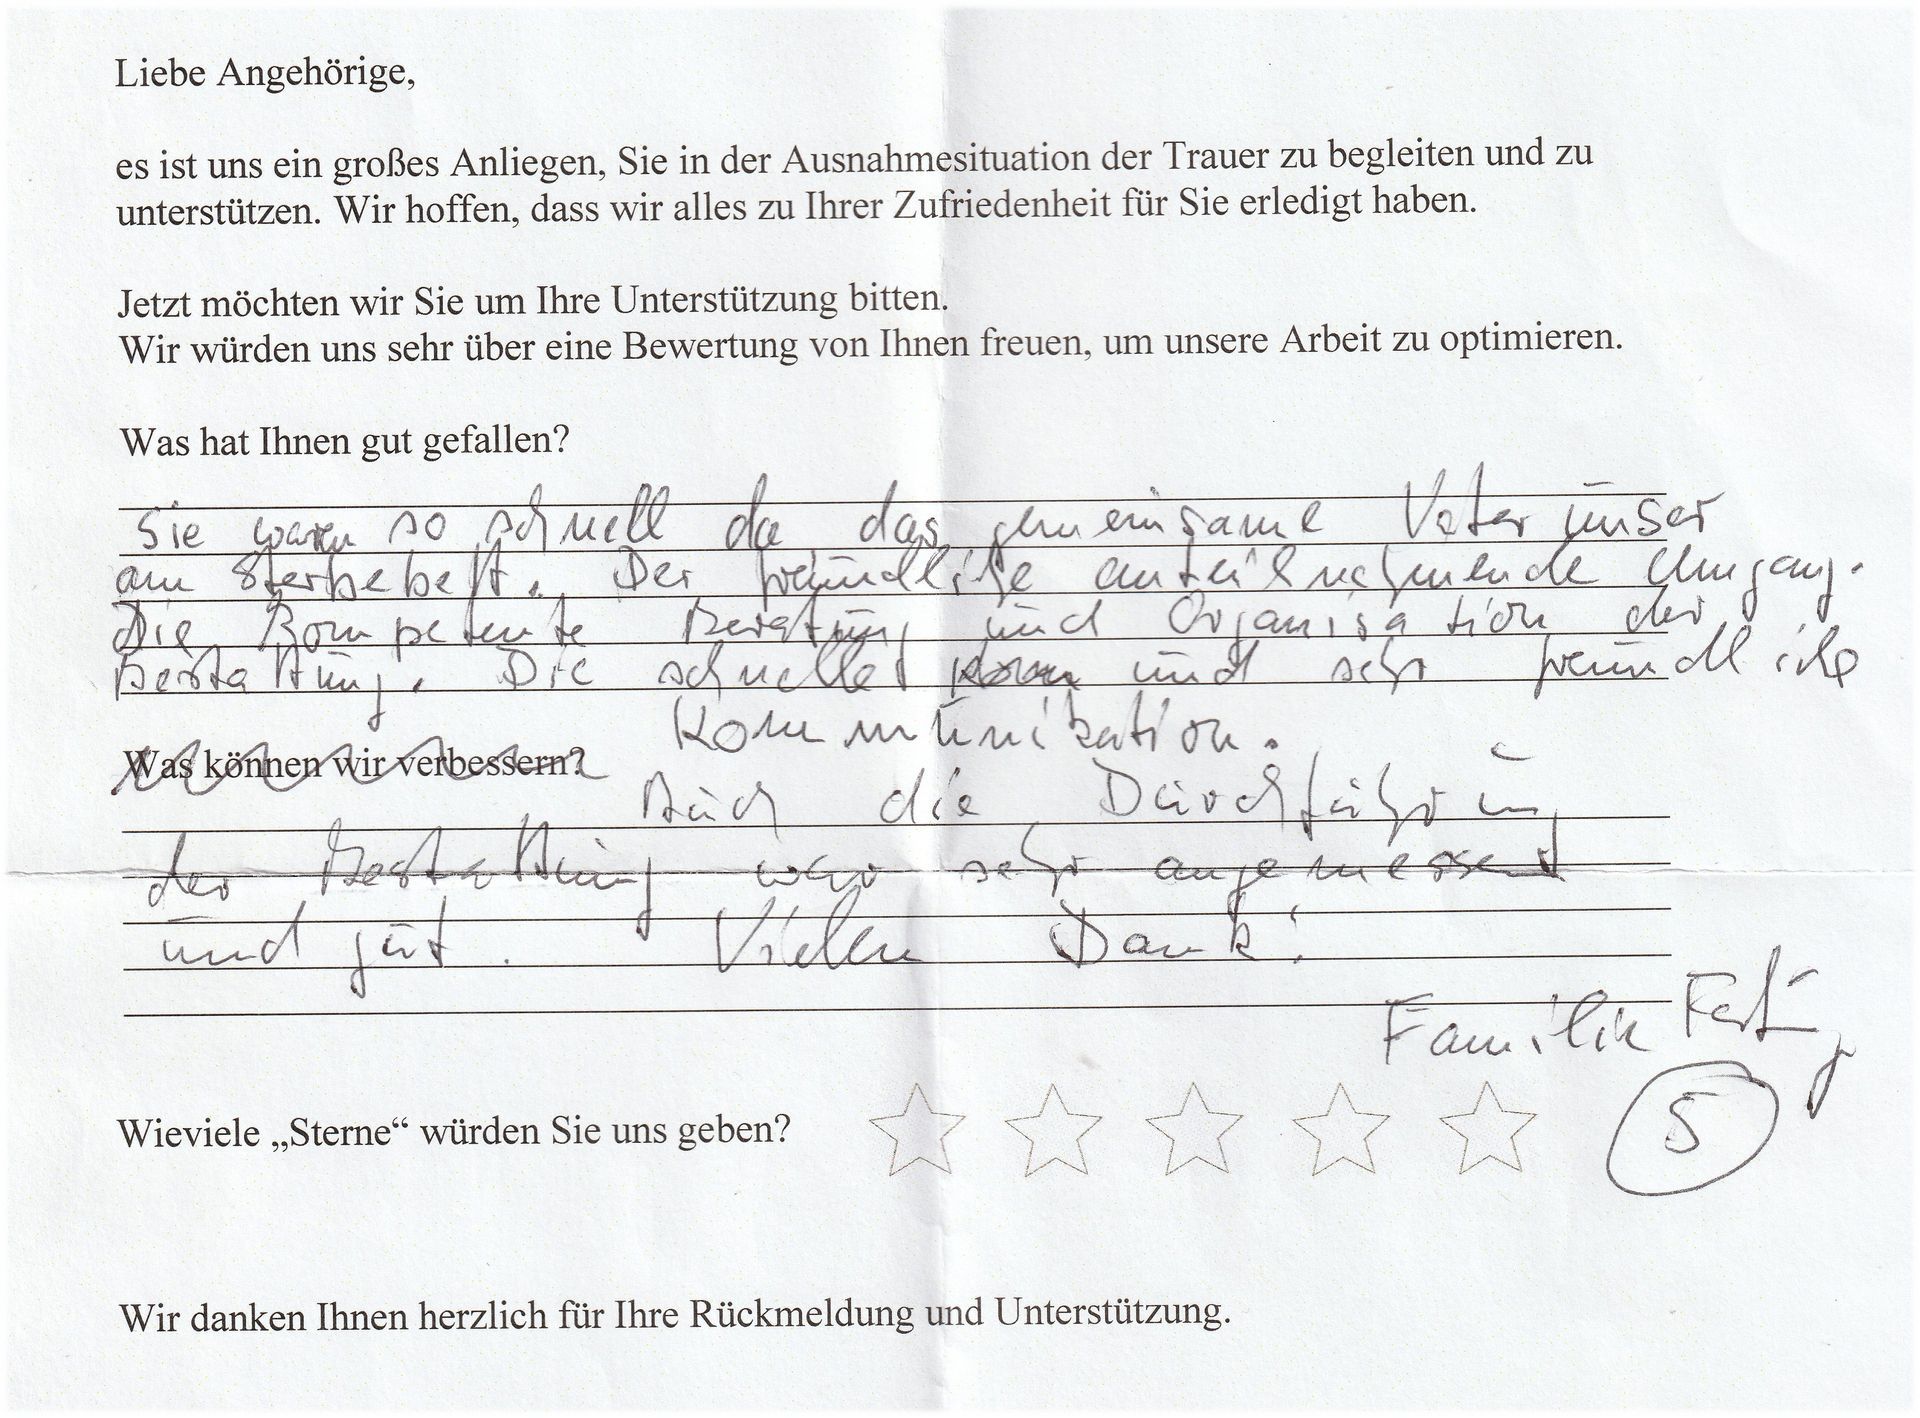 Liebe Angehörige,
es ist uns ein großes Anliegen, Sie in der Ausnahmesituation der Trauer zu begleiten und zu
unterstützen. Wir hoffen, dass wir alles zu Ihrer Zufriedenheit für Sie erledigt haben.
Jetzt möchten wir Sie um Ihre Unterstützung bitten.
Wir würden uns sehr über eine Bewertung von Ihnen freuen, um unsere Arbeit zu optimieren.
Was hat Ihnen gut gefallen?
Sie waren so schnell da das gemeinsame Vater unser
am Sterbebett. Der freundliche anteilnehmende Umgang.
Die Kompetente Beratung und Organisation der
Bestattung. Die schnelle und sehr freundliche
Kommunikation.
Was können wir verbessern?
Auch die Durchführung
der Bestattung war sehr angemessen
und gut. Vielen Dank!
Familie
Wieviele „Sterne“ würden Sie uns geben?
5
Wir danken Ihnen herzlich für Ihre Rückmeldung und Unterstützung.